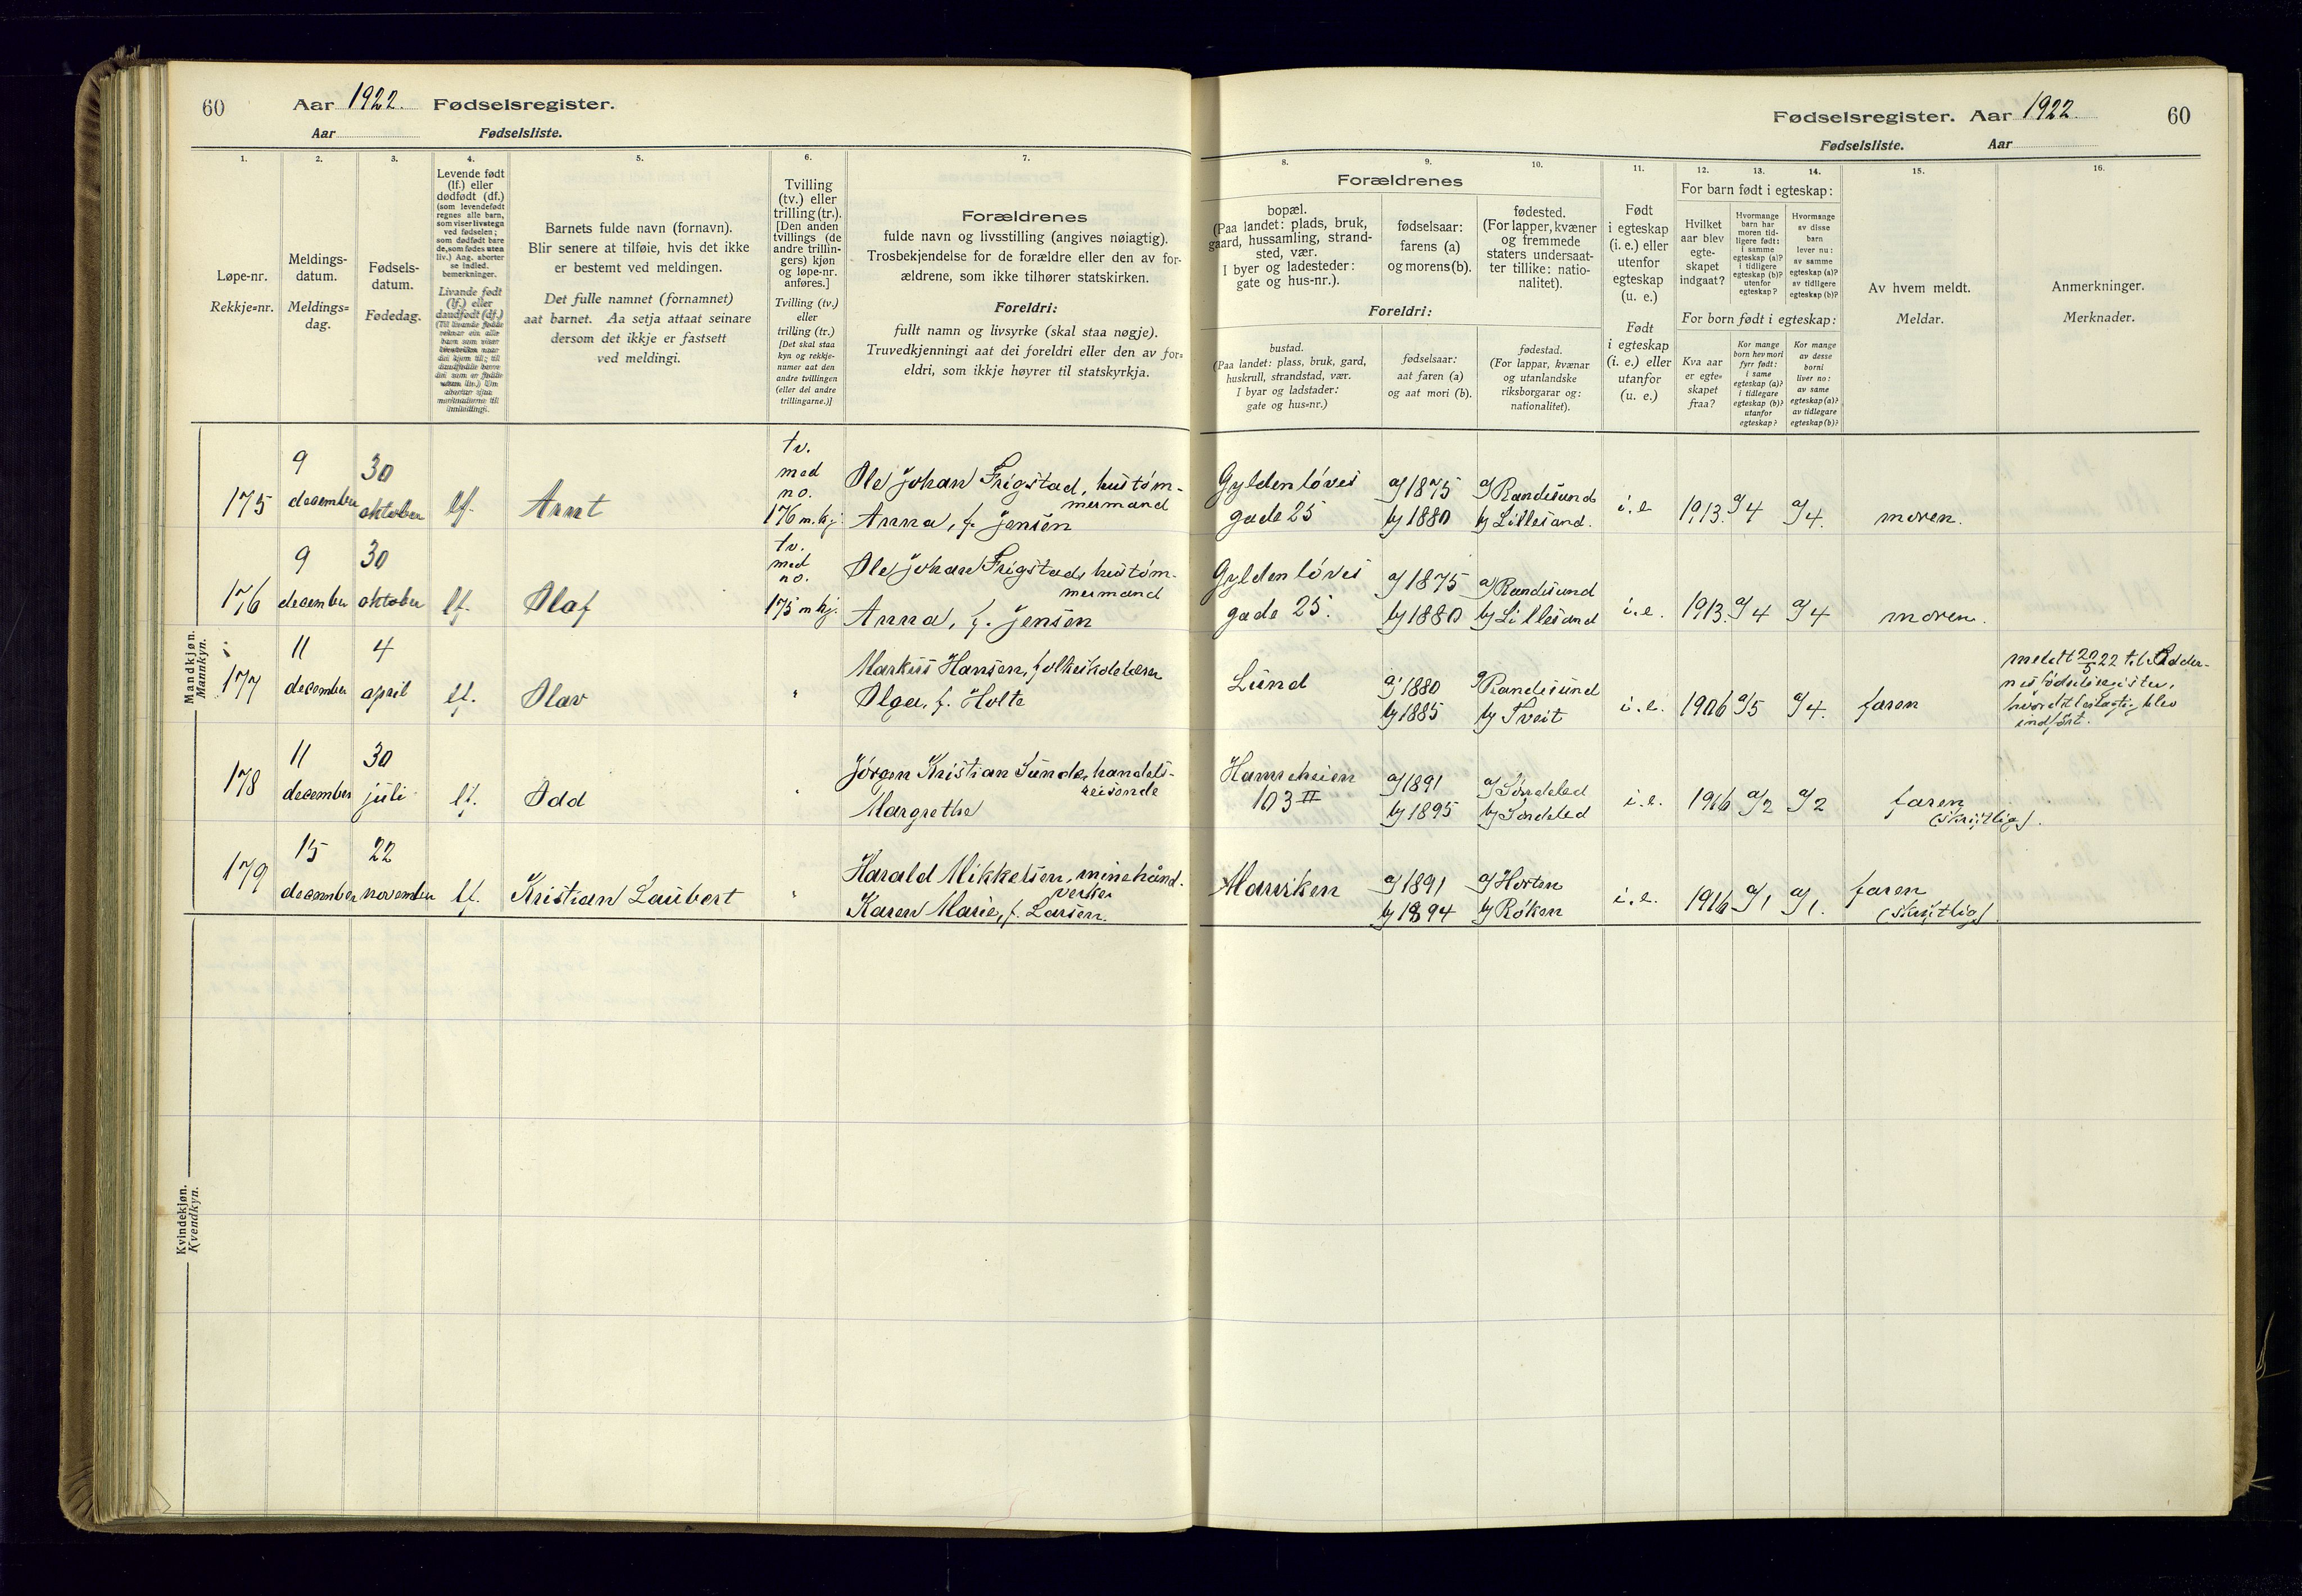 60 Aar 1922. Fødselsregister.
Aar Fødselsliste.
1. 2. 3. 4. 5. 6. 7.
Løpe-nr.
Rekkje=nr.
Meldings-
datum.
Meldings=
dag.
Fødsels-
datum.
Fødedag.
Levende født
(lf.) eller
dødfødt (df.)
(som levendefødt
regnes alle barn,
som viser livstegn
ved fødselen;
som dødfødt bare
de, som fødes uten
liv.) Ang. aborter
se indled.
bemerkninger.
Livande født
(lf.) eller
daudfødt (df.)
Barnets fulde navn (fornavn).
Blir senere at tilføie, hvis det ikke
er bestemt ved meldingen.
Det fulle namnet (fornamnet)
aat barnet. Aa setja attaat seinare
dersom det ikkje er fastsett
ved meldingi.
Tvilling
(tv.) eller
trilling (tr.).
[Den anden
tvillings (de
andre trillin-
gers) kjøn
og løpe-nr.
anføres.]
Tvilling (tv.)
eller
trilling (tr.)
[Det skal staa
kyn og rekkje-
numer aat den
andre tvillingen
(eller dei andre
trillingarne.)]
Forældrenes
fulde navn og livsstilling (angives nøiagtig).
Trosbekjendelse for de forældre eller den av for-
ældrene, som ikke tilhører statskirken.
Foreldri:
fullt namn og livsyrke (skal staa nøgje).
Truvedkjenningi aat dei foreldri eller den av for-
eldri, som ikkje høyrer til statskyrkja.
Mandkjøn.
Mannkyn.
175 9 december 30 oktober lf. Arnt tv. med no. 176 m.kj. Ole Johan Frigstad, hustøm-
mermand
Anna, f. Jensen
176 9 december 30 oktober lf. Olaf tv. med no. 175 m kj. Ole Johan Frigstad, hustøm-
mermand
Anna, f. Jensen
177 11 december 4 april lf. Olav " Markus Hansen, folkeskolelærer
Olga, f. Holte
178 11 december 30 juli lf. Odd " Jörgen Kristian Sunde, handels-
reisende
Margrethe
179 15 december 22 november lf. Kristian Laubert " Harald Mikkelsen, minehånd-
verker
Karen Marie, f. Larsen.
Kvindekjøn.
Kvendkyn.
Fødselsregister. Aar 1922. 60
Fødselsliste. Aar
8. 9. 10. 11. 12. 13. 14. 15. 16.
Forældrenes
bopæl.
(Paa landet: plads, bruk,
gaard, hussamling, strand-
sted, vær.
I byer og ladesteder:
gate og hus-nr.).
fødselsaar:
farens (a)
og morens (b).
fødested.
(For lapper, kvæner
og fremmede
staters undersaat-
ter tillike: natio-
nalitet).
Foreldri:
bustad.
(Paa landet: plass, bruk, gard,
huskrull, strandstad, vær.
I byar og ladstader:
gate og hus=nr.)
fødselsaar:
aat faren (a)
og aat mori (b).
fødestad.
(For lappar, kvænar
og utanlandske
riksborgarar og:
nationalitet).
Født
i egteskap
(i. e.) eller
utenfor
egteskap
(u. e.)
Født
i egteskap
(i. e.) eller
utanfor
egteskap
(u. e.)
For barn født i egteskap:
Hvilket
aar blev
egte-
skapet
indgaat?
Hvormange
barn har
moren tid-
ligere født:
i samme
egteskap (a)?
i tidligere
egteskap (b)?
utenfor
egteskap?
Hvormange
av disse
barn
lever nu:
av samme
egteskap (a)?
av tidligere
egteskap (b)?
For born født i egteskap:
Kva aar
er egte=
skapet
fraa?
Kor mange
born hev mori
fyrr født:
i same
egteskap (a)?
i tidlegare
egteskap (b)?
utanfor
egteskap?
Kor mange
av desse
borni
liver no:
av same
egteskap (a)?
av tidlegare
egteskap (b)?
Av hvem meldt.
Meldar.
Anmerkninger.
Merknader.
Gyldenløves
gade 25 a) 1875 b) 1880 a) Randesund b) Lillesand. i. e 1913. a) 4 a) 4. moren.
Gyldenløves
gade 25. a) 1875 b) 1880 a) Randesund b) Lillesand i. e. 1913. a) 4 a) 4 moren.
Lund a) 1880 b) 1885 a) Randesund b) Tveit i. e. 1906 a) 5 a) 4. faren
meldt 20/5 22 til Odder-
nes fødselsregister,
hvor det feilagtig blev
indført.
Hamreheien
103 II a) 1891 b) 1895 a) Søndeled b) Søndeled i. e. 1916 a) 2 a) 2 faren
(skriftlig).
Marviken a) 1891 b) 1894 a) Horten b) Röken i. e. 1916 a) 1 a) 1. faren
(skriftlig)